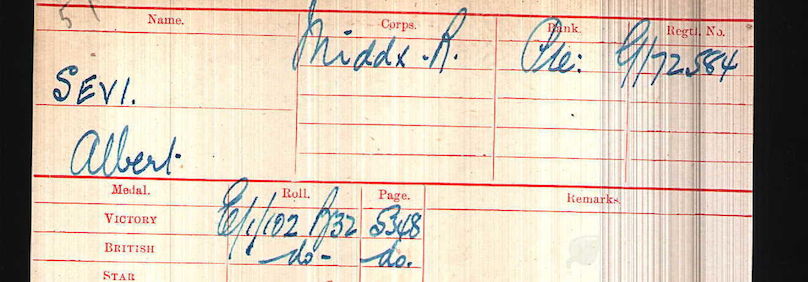 51
Name. Corps. Rank. Regtl. No.
Middx. R. Pte: G/72584
SEVI.
Albert.
Medal. Roll. Page. Remarks.
VICTORY E/1/102 B32 5348
BRITISH -do- do.
STAR